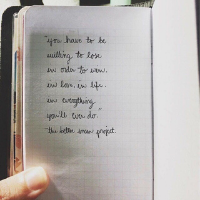 "you have to be
willing to lose
in order to win.
in love, in life.
in everything
you'll ever do."
the better man project.